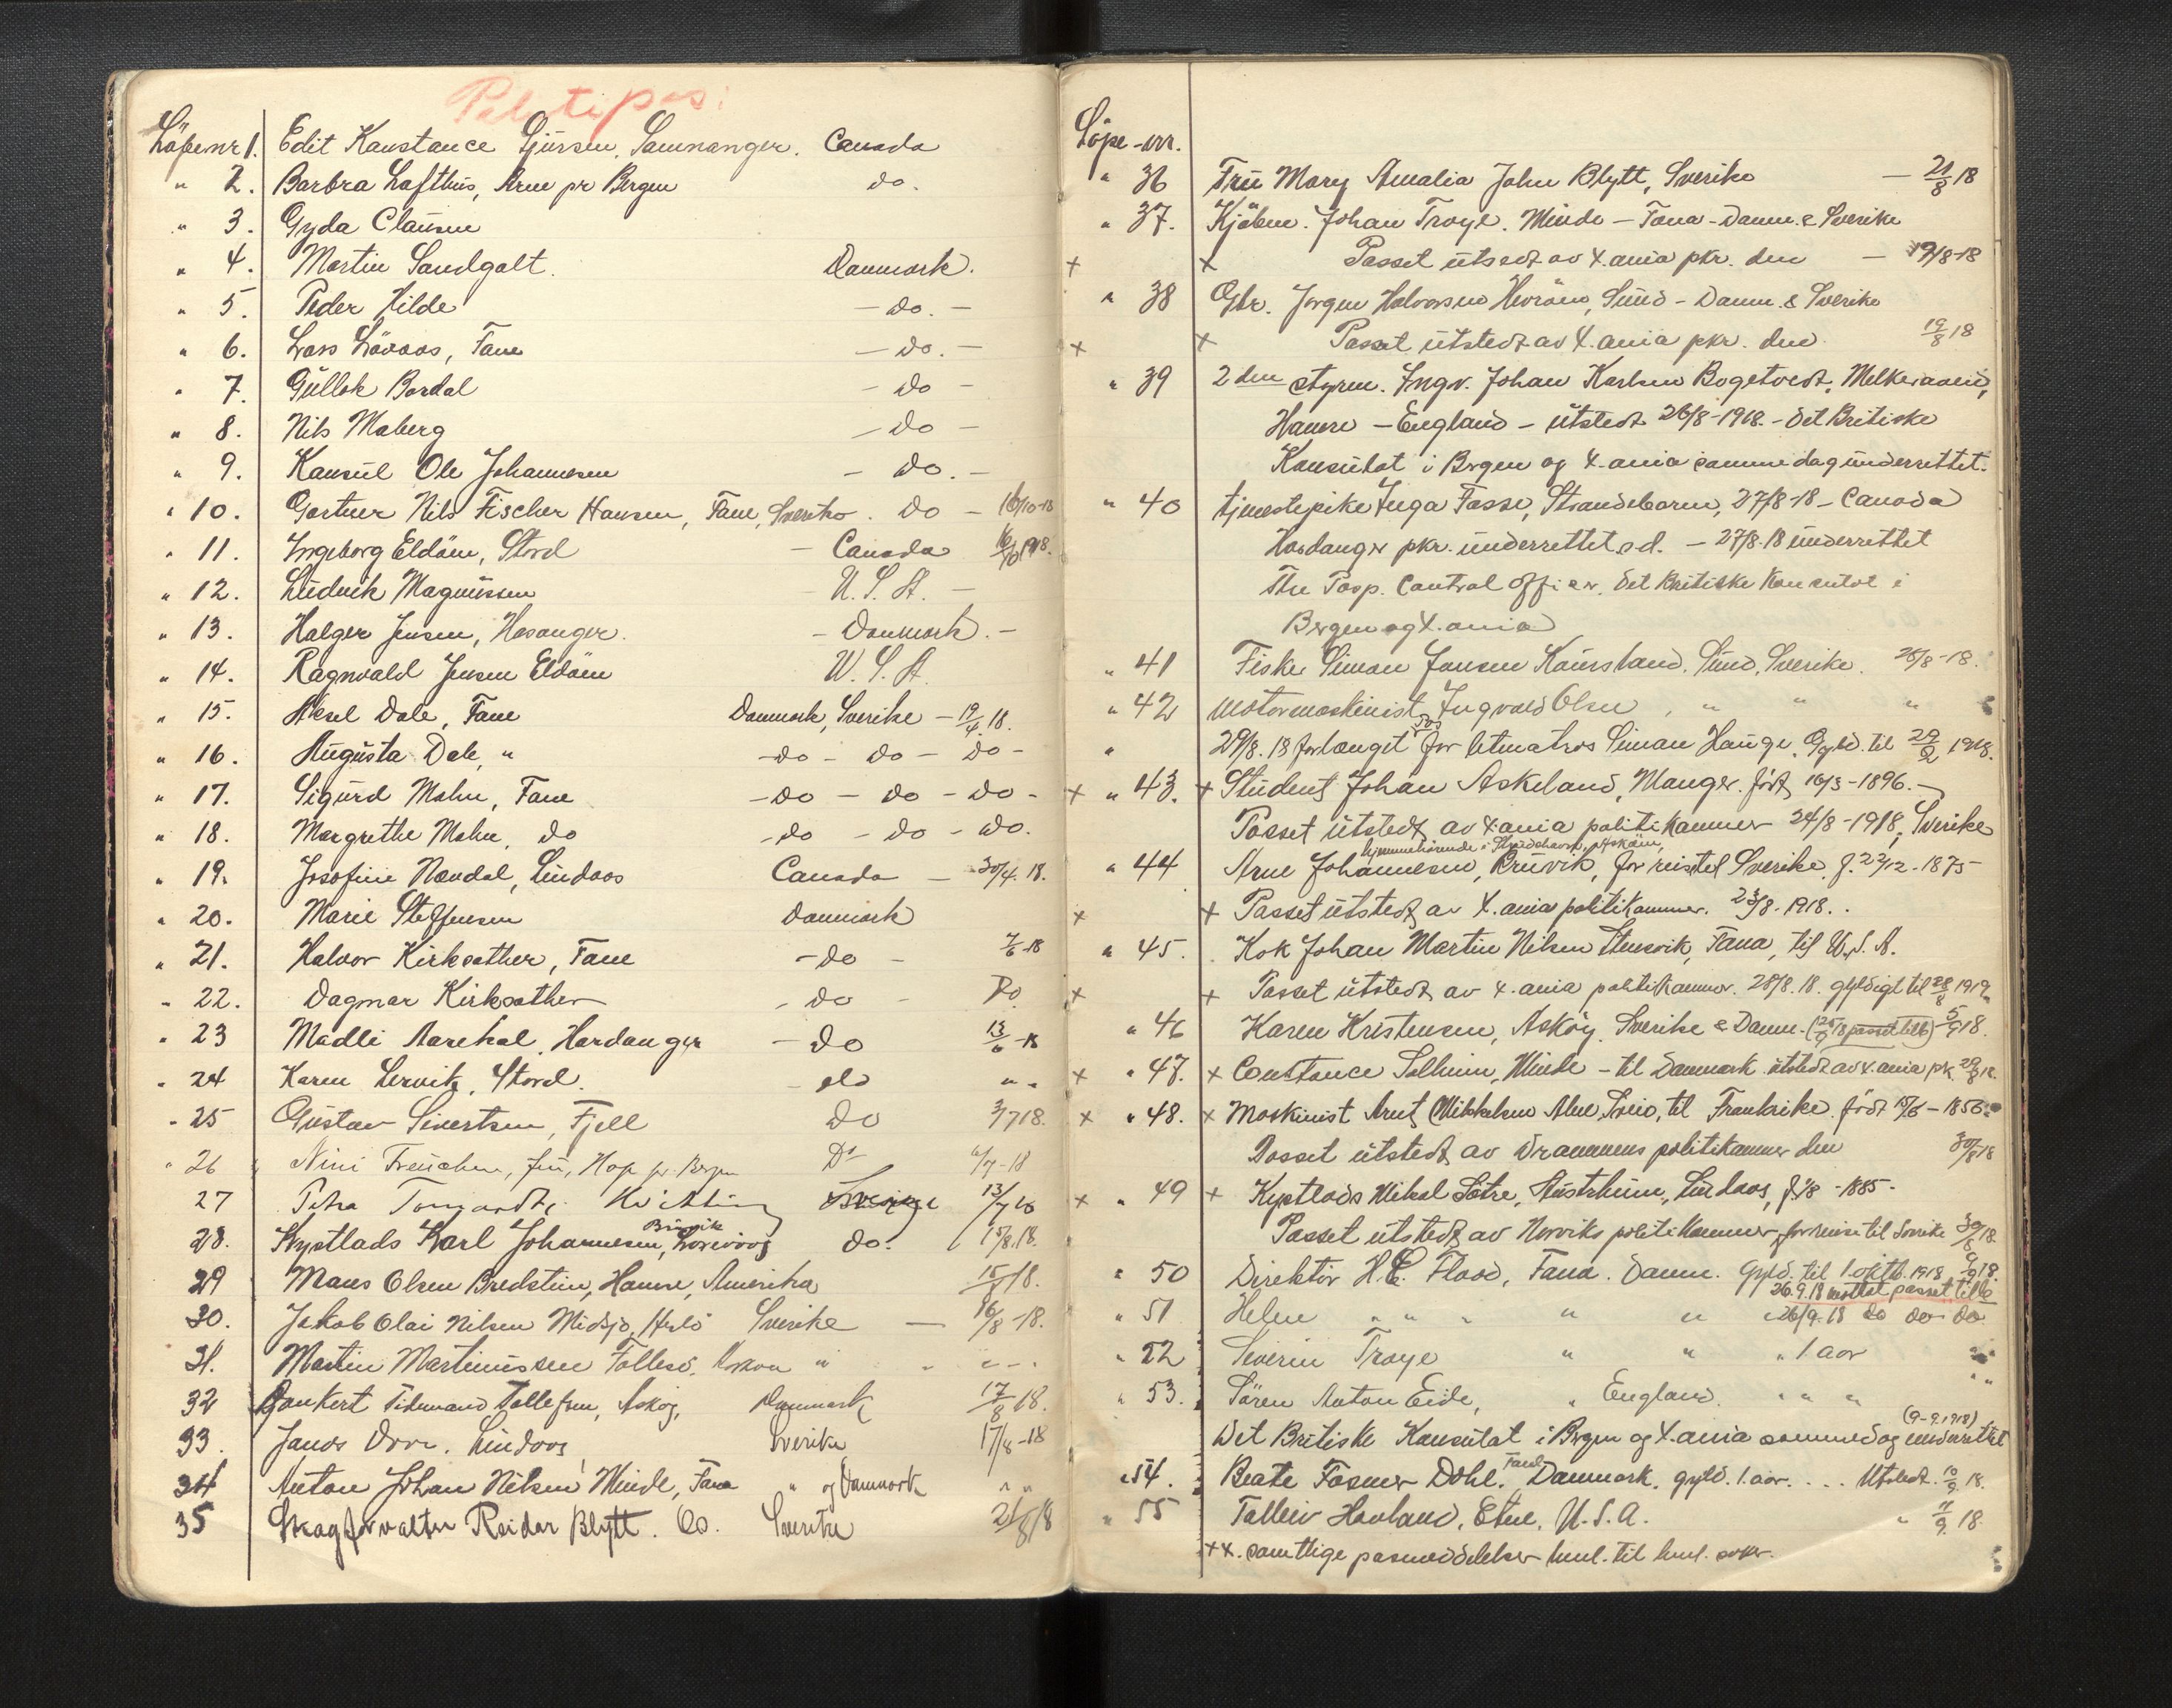 Löpenr 1. Edit Konstance Sjursen, Samnanger. Canada
" 2. Barbra Lofthus, Arne pr Bergen do.
" 3. Gyda Clausen
" 4. Martin Sandgalt. Danmark.
" 5. Peder Hilde - do. -
" 6. Lars Lövaas, Fane - do. -
" 7. Gullek Bordal - do -
" 8. Nils Moberg - do -
" 9. Konsul Ole Johannesen - do. -
" 10. Gartner Nils Fischer Hansen, Fane, Sverike. do - 16/10-18
" 11. Ingeborg Eldöen, Stord - Canada 16/10 1918.
" 12. Ludvik Magnussen U. S. A. -
" 13. Holger Jensen, Hosanger. - Danmark. -
" 14. Ragnvald Jensen Eldöen U. S. A.
" 15. Aksel Dale, Fane Danmark, Sverike - 19/4 18.
" 16. Augusta Dale, " - do - do - do -
" 17. Sigurd Mohn, Fane - do - do - do -
" 18. Margrethe Mohn, do - do - do - do.
" 19. Josefine Nævdal, Lindaas Canada - 30/4. 18.
" 20. Marie Steffensen Danmark
" 21. Halvor Kirksæther, Fane - do - 7/6-18
" 22. Dagmar Kirksæther - do - Do.
" 23 Madli Aarekol, Hardanger - do 13/6-18
" 24 Karen Lervik, Stord. - do " -
" 25 Gustav Sivertsen, Fjell do 3/7 18.
" 26 Nini Freuchen, fru, Hop pr. Bergen Do /7-18
27 Petra 13/7 18
28. Kystlods Karl Johannesen, Bruvik do. 15/8.18.
29 Mons Olsen Bredstein, Hamre, Amerika 15/8 18.
30. Jakob Olai Nilsen Midsjö, Herlö Sverike - 16/8-18.
31. Martin Martinussen Follesö, Askøy " " " - .
32 Tidemand Tollefsen, Askøy, Danmark 17/8 18.
33. Lindaas, Sverike 17/8-18
34 Anton Johan Nilsen Minde, Fana " og Danmark " "
35 Skogforvalter Reidar Blytt. Os. Sverike 21/8 18
Löpe-nr.
" 36 Fru Mary Amalia John Blytt, Sverike - 21/8 18
" 37. Kjöbm. Johan Troye. Minde - Fana - Danm. & Sverike
+ + Passet utstedt av X.ania pkr. den - 19/8-18
" 38 Gbr. Jørgen Halvorsen Sund - Danm. & Sverike
+ + Passet utstedt av X.ania pkr. den 19/8 18
" 39 2den styrm. Ingv. Johan Karlsen Bogetvedt,
Hamre - England - utstedt 26/8-1918. - Det Britiske
Konsulat i Bergen og X.ania samme dag underrettet.
" 40 tjenestepike Inga Fosse, Strandebarm, 27/8-18 - Canada
Hardanger pkr. underrettet s.d. - 27/8.18 underrettet
The Pasp. Control Officer. Det Britiske Konsulat i
Bergen og X.ania
" 41 Fisker Simon Jansen Kausland. Sund, Sverike. 28/8-18.
" 42 motormaskinist Ingvald Olsen, " " "
" 29/8. 18 forlænget pas for letmatros Simon Hauge. Gyld. til 29/2 1918.
+ " 43. + Student Johan Askeland, Manger. født 16/3-1896.
Passet utstedt av X.ania politikammer 24/8-1918, Sverike
" 44 Arne Johannesen, Bruvik, for reise til Sverike. f. 22/12. 1875
+ + Passet utstedt av X.ania politikammer. 23/8-1918..
" 45. Kok Johan Martin Nilsen Stensvik, Fana, til U.S.A.
+ + Passet utstedt av X.ania politikammer. 28/8. 18. gyldigt til 28/8 1919.
" 46 Karen Kristensen, Askøy. Sverike & Danm. 5/9 18.
+ " 47. + Constance Solheim, Minde - til Danmark utstedt av X.ania pk. 29/8 18.
+ " 48. + Maskinist Arnt Mikkelsen Sveio, til Frankrike. født 10/6-1856.
Passet utstedt av Drammens politikammer den 30/8 18
+ " 49 + Kystlods Mikal Sætre, Austrheim, Lindaas, f. 1/8-1885-
Passet utstedt av Narviks politikammer for reise til Sverike 30/8 18.
" 50 Direktör H.C. Flood, Fana. Danm. Gyld. til 1. oktb. 1918 6/9 18.
26.9.18 mottat passet tilb.
" 51 Helene " " " " " 26/9.18 do do do
" 52 Severin Troye " " " 1 aar "
" 53. Sören Anton Eide, " England. " " " "
Det Britiske Konsulat i Bergen og X.ania samme dag underrettet (9-9.1918)
" 54. Beate Fasmer Dahl. Fana, Danmark. gyld. 1. aar. ... Utstedt. 10/9 18.
" 55 Tolleiv Havland, Etne, U.S.A. " 11/9 18.
++. samtlige pasmeddelelser henl. til henl. saker.